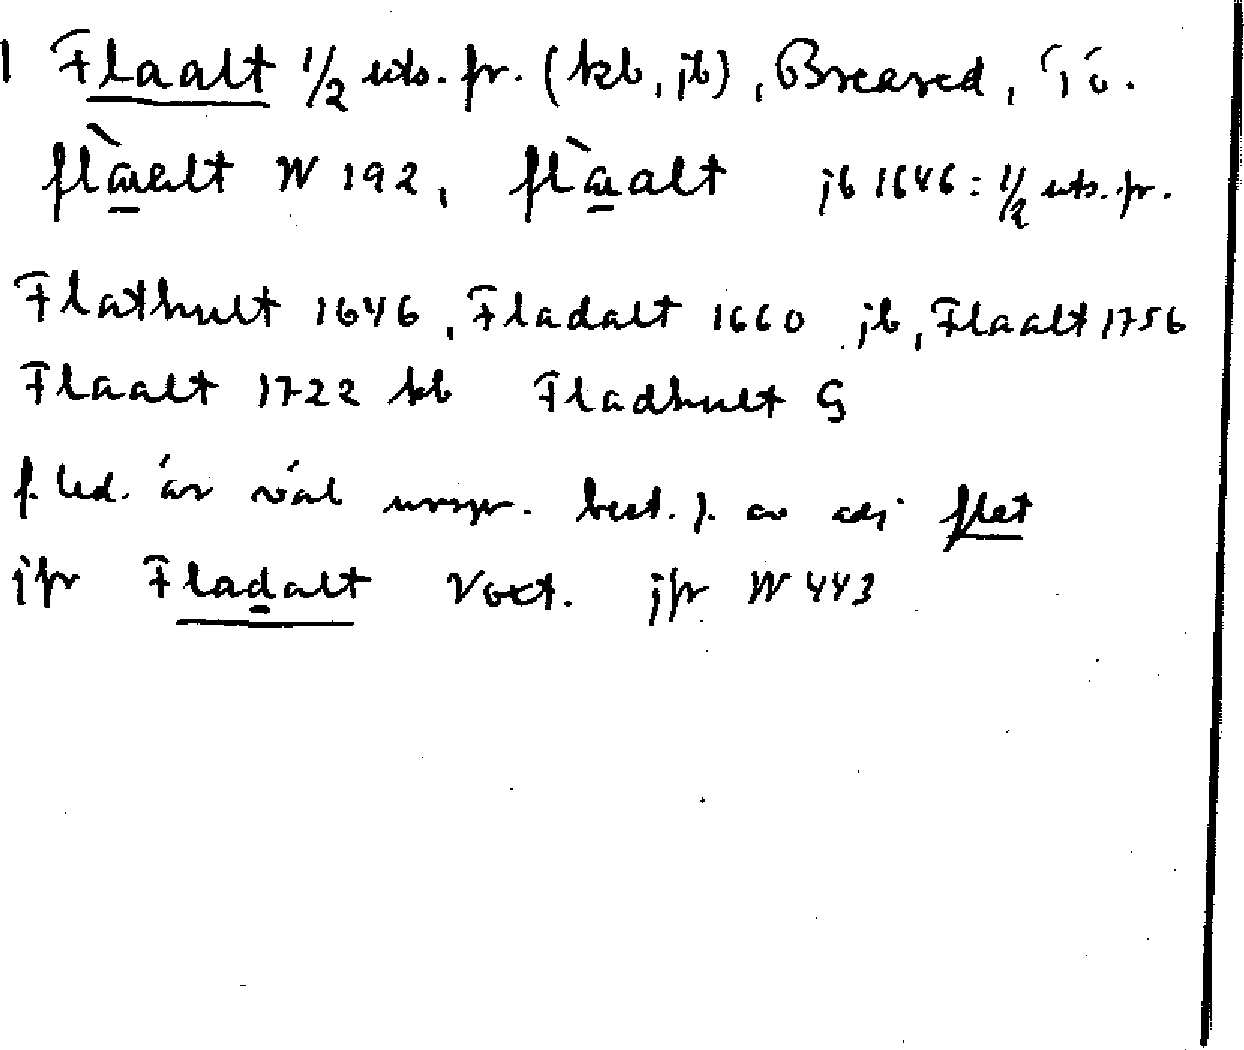 1 Flaalt 1/2 uts. fr. (kb, jb), Breared, Tö.
flàalt W 192, flàalt jb 1646: 1/2 uts. fr.
Flathult 1646, Fladalt 1660 jb, Flaalt 1756
Flaalt 1722 kb Fladhult G
f. led. är väl urspr. best. f. av adj flat
jfr Fladalt Voxt. jfr W 443